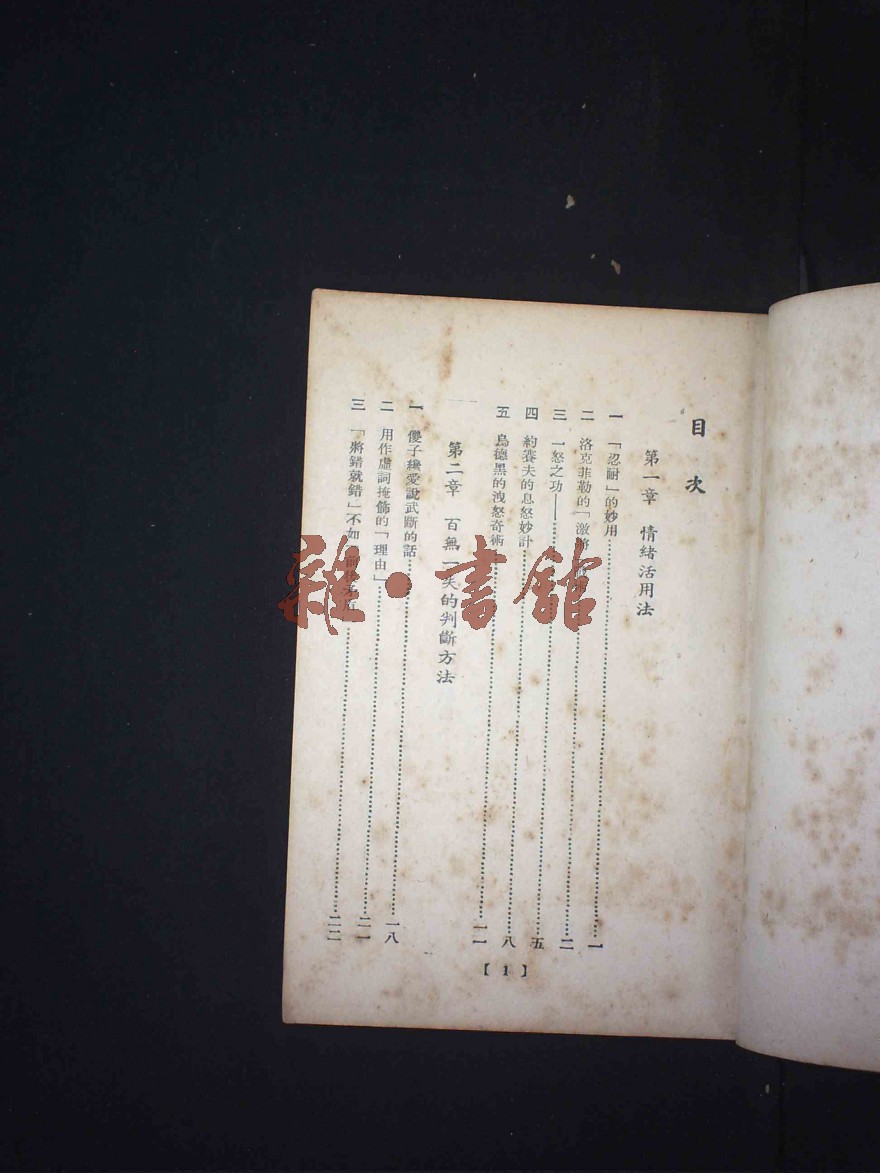 目次
第一章 情緒活用法
一 「忍耐」的妙用……一
二 洛克菲勒的「激將
三 一怒之功——……二
四 約瑟夫的息怒妙計……五
五 烏德黑的洩怒奇術……八
第二章 百無一失的判斷方法
一 傻子纔愛說武斷的話……一八
二 用作虛詞掩飾的「理由」……二一
三 「將錯就錯」不如「前後矛盾……二二
一一
【1】
雜·書館